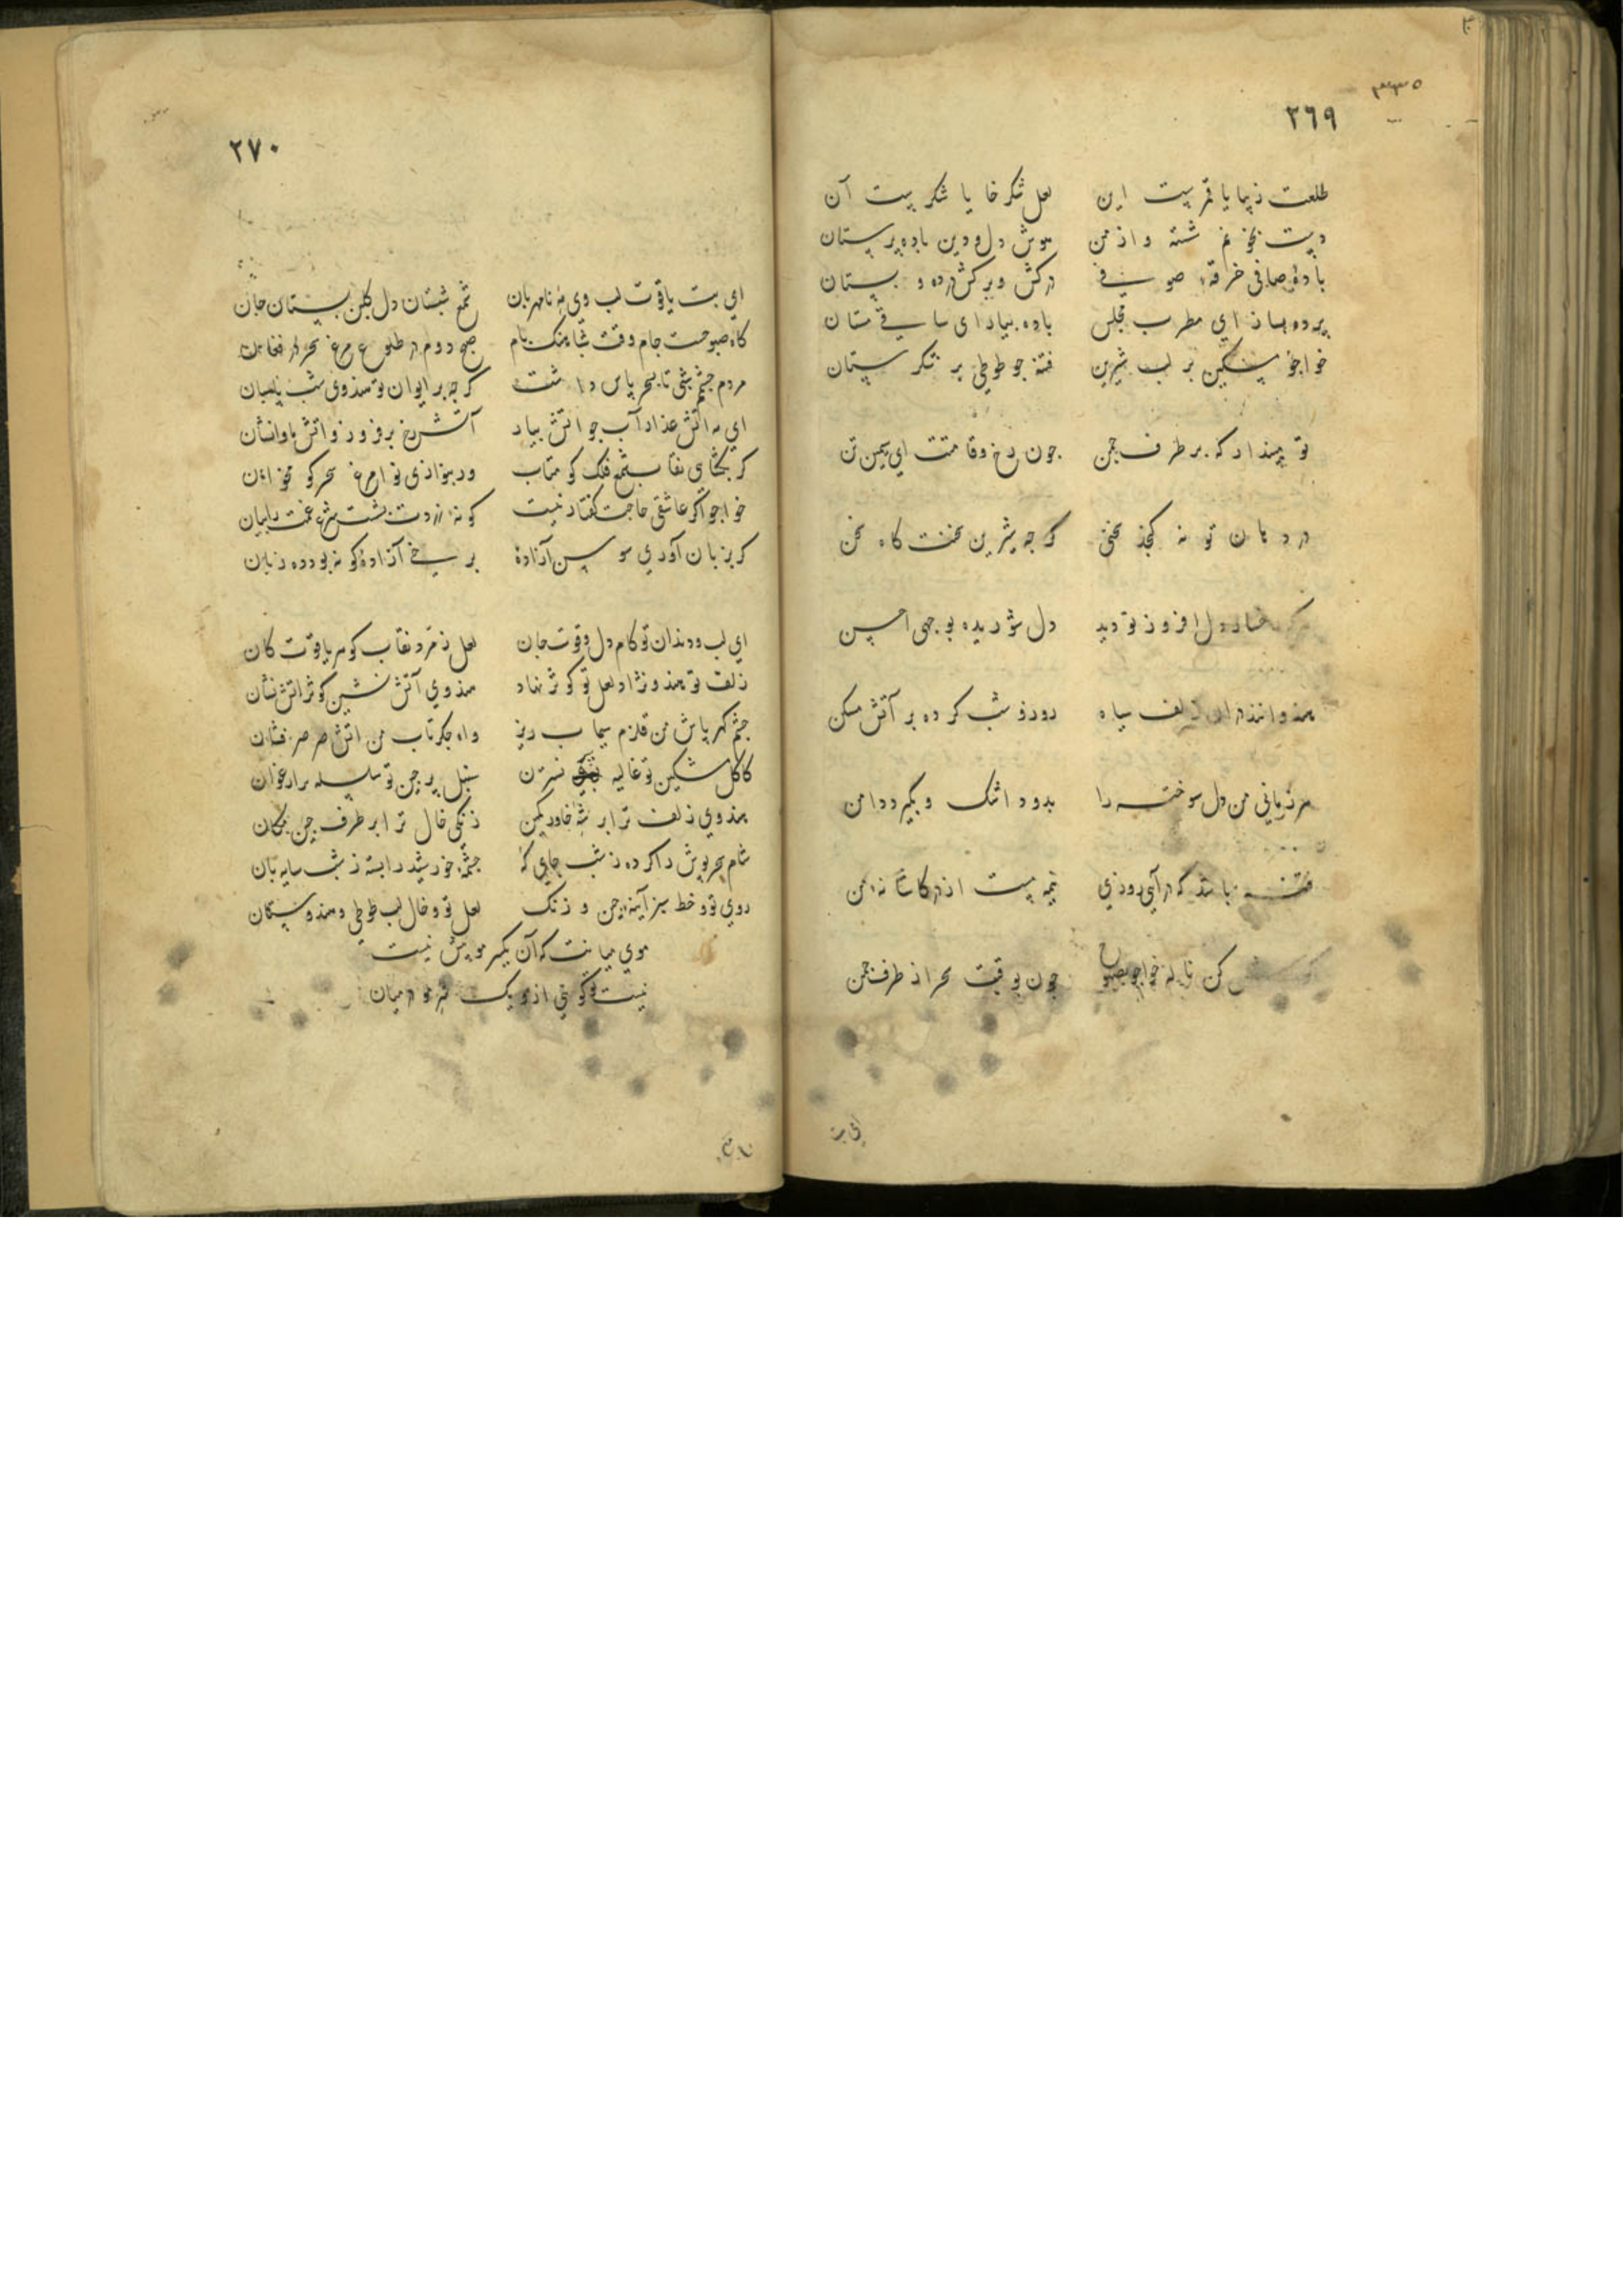 ۳۳۵
۲٦۹
طلعت زیبا یا قمریست این لعل شکر خا یا شکریست آن
دست بخونم شسته و از من هوش دل و دین باده پرستان
بادهٔ صافی خرقهٔ صوفی درکش و برکش در ده و بستان
پرده بساز ای مطرب مجلس باده بیار ای ساقی مستان
خواجو مسکین بر لب شیرین فتنه جو طوطی بر شکرستان
تو مپندار که بر طرف جمن جون رخ و قامتت ای سیمین تن
در دهان تو نه کنجد سخنی کرجه شیرین سخنت کاه سخن
هرکه رخسار دل افروز تو دید دل شوریده بوجهی احسن
هندوانند در ان زلف سیاه روز و شب کرده بر آتش مسکن
هر زمانی من دل سوخته را بدود اشک و بکیرد دامن
فتنه باشد که درآیی روزی نیمه مست از در کاشانه من
کوش کن نالهٔ خواجو بصبوح جون بوقت سحر از طرف جمن
ای بت
۲۷۰
ای بت یاقوت لب وی مه نامهربان شمع شبستان دل کلبن بستان جان
کاه صبوحست جام وقت شباهنک بام صبح دوم در طلوع مرغ سحر در فغان
مردم جشمم شبی تا بسحر پاس داشت کرجه بر ایوان تو هندوی شب پاسبان
ای مه آتش عذار آب جو آتش بیار آتش رخ برفروز و آتش ما وانشان
کر بکشای نقاب شمع فلک کو متاب ور بنوازی نوا مرغ سحر کو مخوان
خواجو اکر عاشقی حاجت کفتار نیست کونهٔ زردت بشرح غمت بیان
کر بزبان آوری سوسن آزادهٔ برسخ آزادهٔ کو نه بود ده زبان
ای لب و دندان تو کام دل و قوت جان لعل زمرد نقاب کوهر یاقوت کان
زلف تو هندو نژاد لعل تو کوثر نهاد هندوی آتش نشین کوثر آتش نشان
جشم کهر پاش من قلزم سیماب ریز واه جکرتاب من آتش صرصر فشان
کاکل مشکین تو غالیه بر نسترن سنبل پرجین تو سلسله بر ارغوان
هندوی زلف ترا بر شه خاور کمین زنکی خال ترا بر طرف جین مکان
شام سحرپوش را کرده ز شب جایکه جشمهٔ خورشید را بسته ز شب سایه بان
روی تو و خط سبز آینهٔ جین و زنک لعل تو و خال لب طوطی و هندوستان
موی میانت که آن یکسر مو بیش نیست
نیست تو کوئی ازو یک سر مو در میان